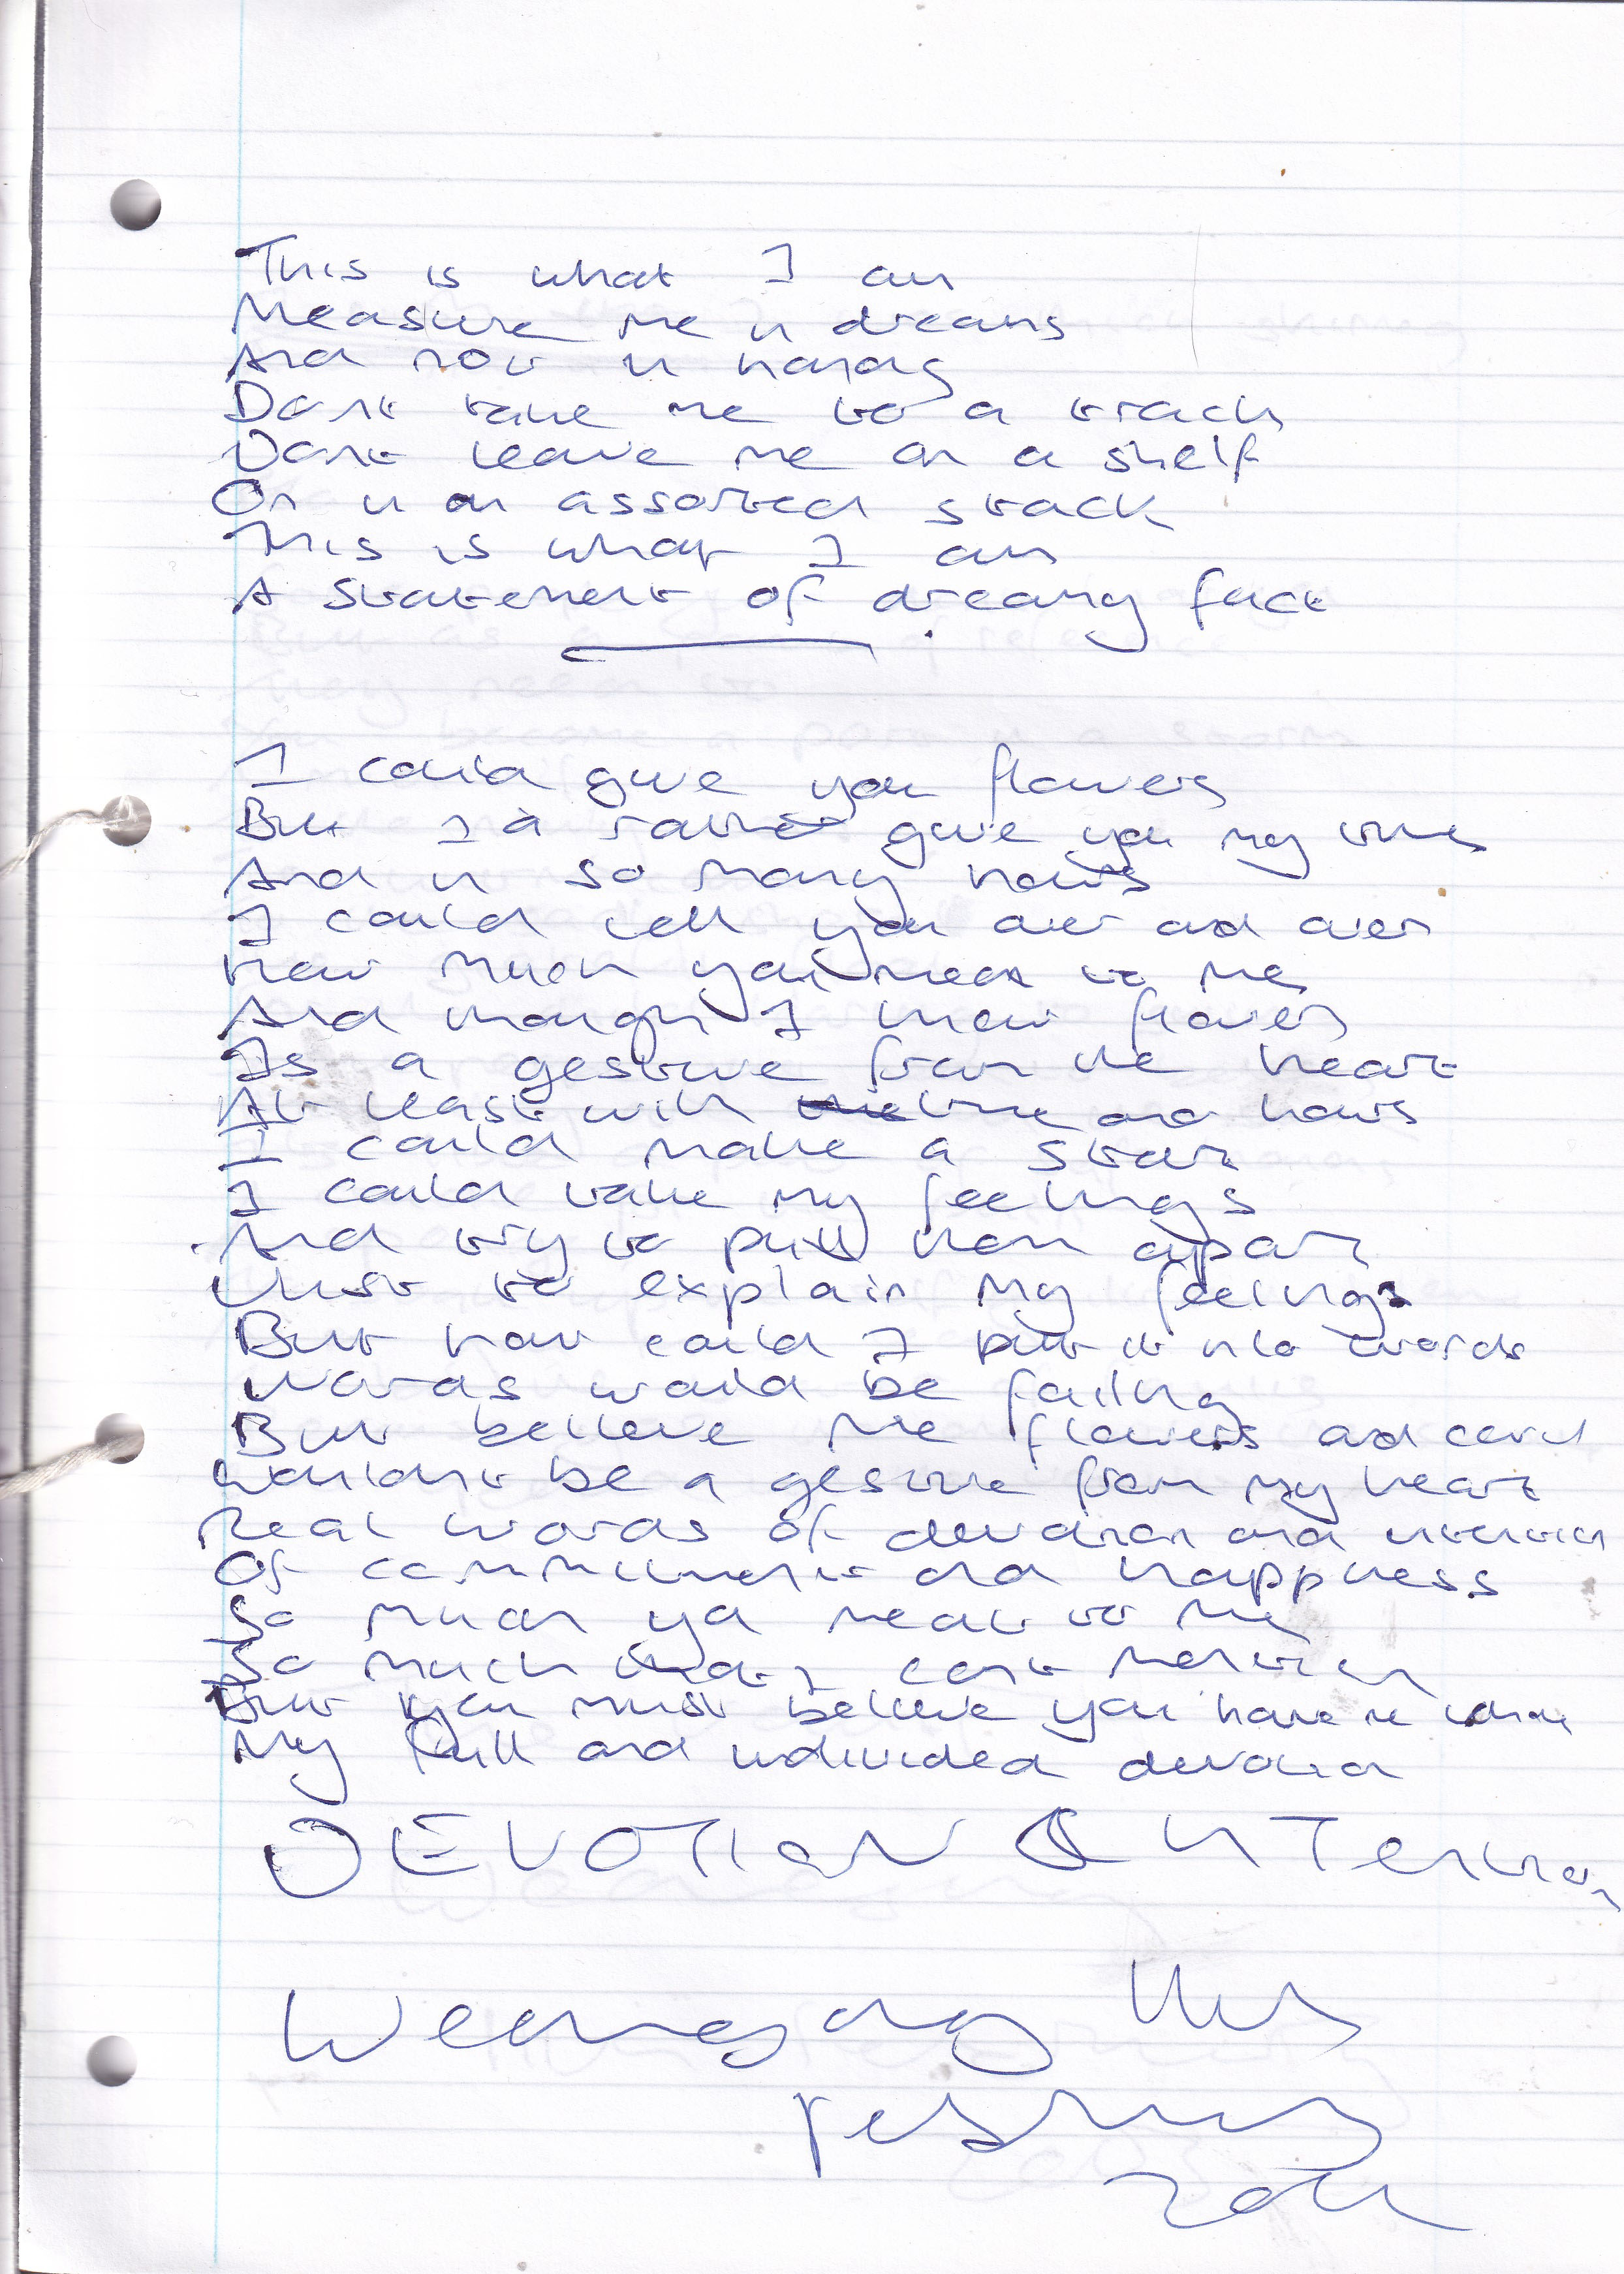 This is what I am
Measure me in dreams
And not in hands
Dont take me to a
Dont leave me on a shelf
Or in an assorted stack
This is what I am
A statement of dreamy fact
I could give you flowers
But I'd rather give you my time
And in so many hours
I could tell you over and over
how much you mean to me
And though I know flowers
Is a gesture from the heart
At least with time and hours
I could make a start
I could take my feelings
And try to pull them apart
Just to explain my feelings
But how could I put it into words
Words would be failing
But believe me flowers and card
wouldnt be a gesture from my heart
Real words of devotion and intention
Of commitment and happiness
So much ya mean to me
So much that I cant mention
But you must believe you have me
My full and undivided devotion
DEVOTION & INTention
Wednesday
February